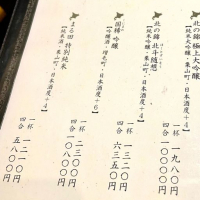 北の錦 極上大吟醸
【純米大吟醸・栗山町・日本酒度+4】
一杯 一九八〇円
北の錦 北斗随想
【純米吟醸・栗山町・日本酒度+4】
一杯 一三二〇円
四合 六三五〇円
国稀 吟醸
【吟醸酒・増毛町・日本酒度+6】
一杯 二三〇〇円
四合 一〇八〇〇円
まる田 特別純米
【純米酒・栗山町・日本酒度+4】
一杯 一二一〇円
四合 五八〇〇円